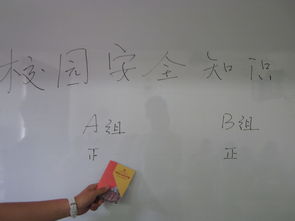 校园安全知识
A组 B组
正 正